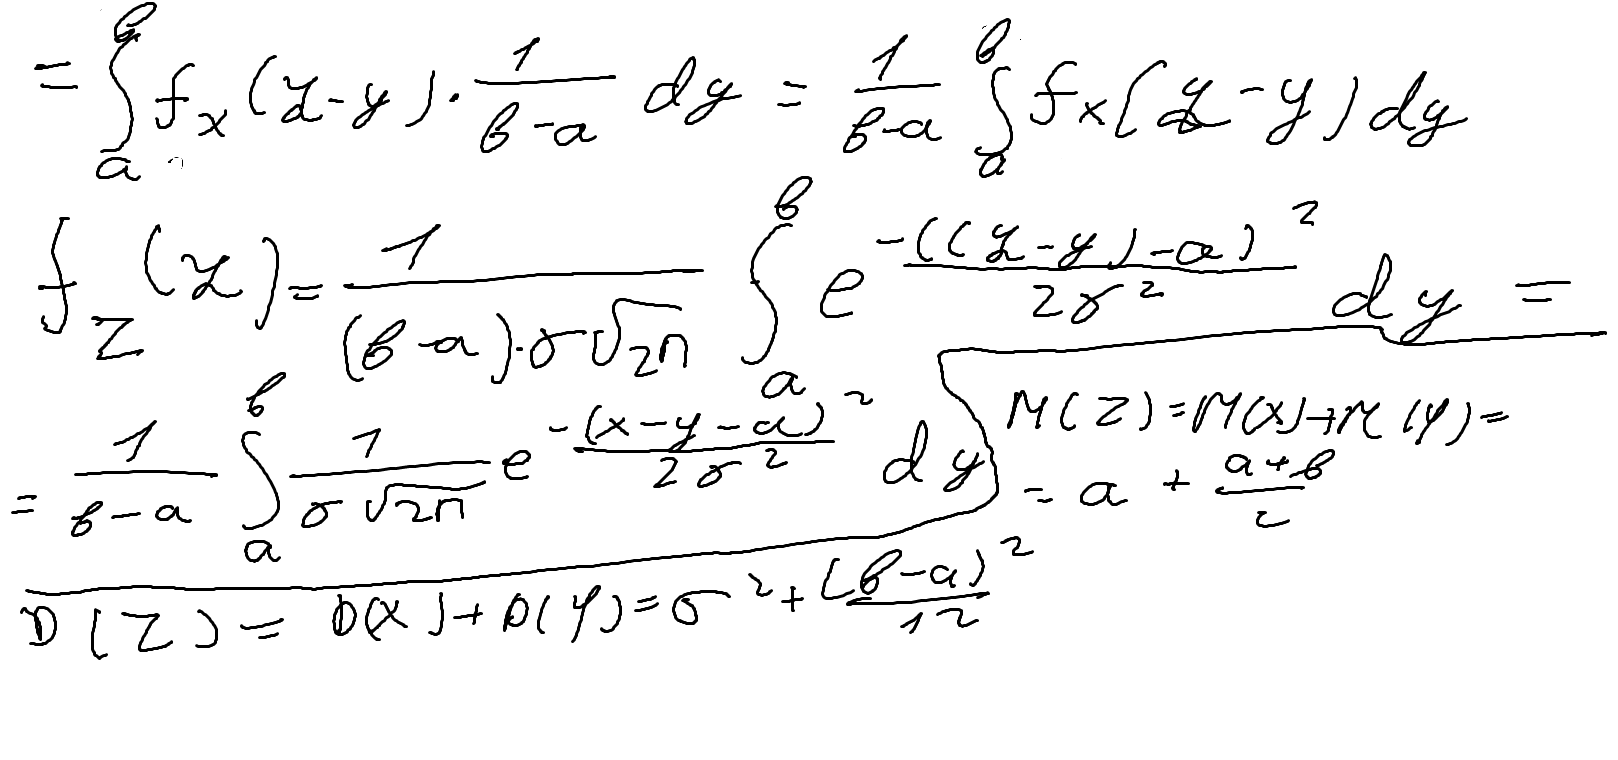 = ∫_a^b f_x(z-y) · 1/(b-a) dy = 1/(b-a) ∫_a^b f_x(z-y) dy
f_Z(z) = 1/((b-a)·σ√2π) ∫_a^b e^{-((z-y)-a)²/2σ²} dy =
= 1/(b-a) ∫_a^b 1/(σ√2π) e^{-(x-y-a)²/2σ²} dy
M(Z) = M(X) + M(Y) =
= a + (a+b)/2
D(Z) = D(X) + D(Y) = σ² + (b-a)²/12